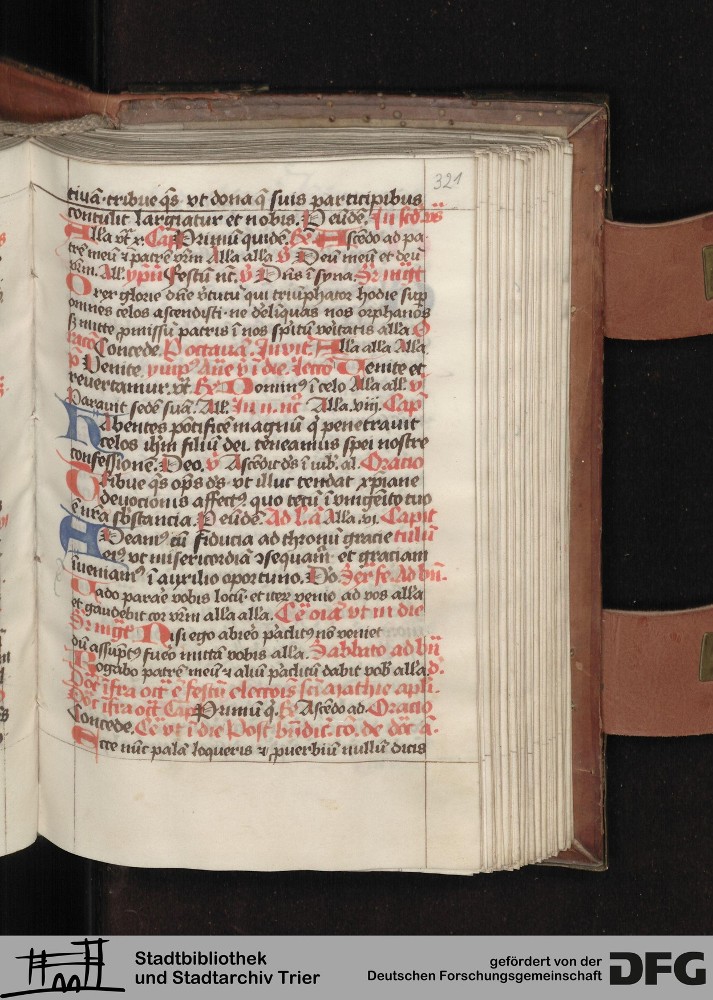 321
tiuā· tribue qs vt dona q̄ suis participibus
contulit largiatur et nobis. P eūdē. In scd̄
Alla vt Cap Primū quidē. Ascēdo ad pa
trē meū ⁊ patrē vrm̄ Alla alla Deū meū et deū
vrm̄. All. ympn̄ Festū nc̄. Dn̄s ī syna.
O rex glorie dn̄e v̄tutū qui triūphator hodie sup
omnes celos ascendisti· ne delīquas nos orphanos
s mitte ꝓmissū patris ī nos spitū veritatis alla
racō Concede. Alla alla Alla
Uenite. Uenite et
reuertamur. vt Dominꝰ ī celo Alla all.
Parauit sedē suā. All. In n. nc̄ Alla. viij. Cap̄
Habentes pōtificē magnū q̇ penetrauit
celos ihm̄ filiū dei. teneamus spei nostre
confessionē. Deo. Ascēdit ds̄ ī iub. al. Oracio
Tribue qs op̄s ds̄ vt illuc tendat xp̄iane
deuocionis affectꝰ quo tecū ī vnigeīto tuo
ē nr̄a sb̄stancia. P eūdē. Ad Alla. vi. Capit
Adeamꝰ cū fiducia ad thronū gracie
eiꝰ vt misericordiā ↄsequamr̄ et graciam
īueniamꝰ ī auxilio oportuno. Do
Uado parare vobis locū· et iter venio ad vos alla
et gaudebit cor vrm̄ alla alla. vt in die
Nisi ego abiero paclitꝰ nō veniet
dū assuptꝰ fuero mittā vobis alla. Sabbato ad bn̄
Rogabo patrē meū ⁊ aliū paclitū dabit vob̄ alla.
ifra oct ē festū sci̅ mathie apli.
ifra oct Cap Primū q̇. Ascēdo ad. Oracio
Concede. vt ī die Post
Ecce nūc palā loqueris ⁊ ꝓuerbiū nullū dicis
Stadtbibliothek
und Stadtarchiv Trier
gefördert von der
Deutschen Forschungsgemeinschaft
DFG